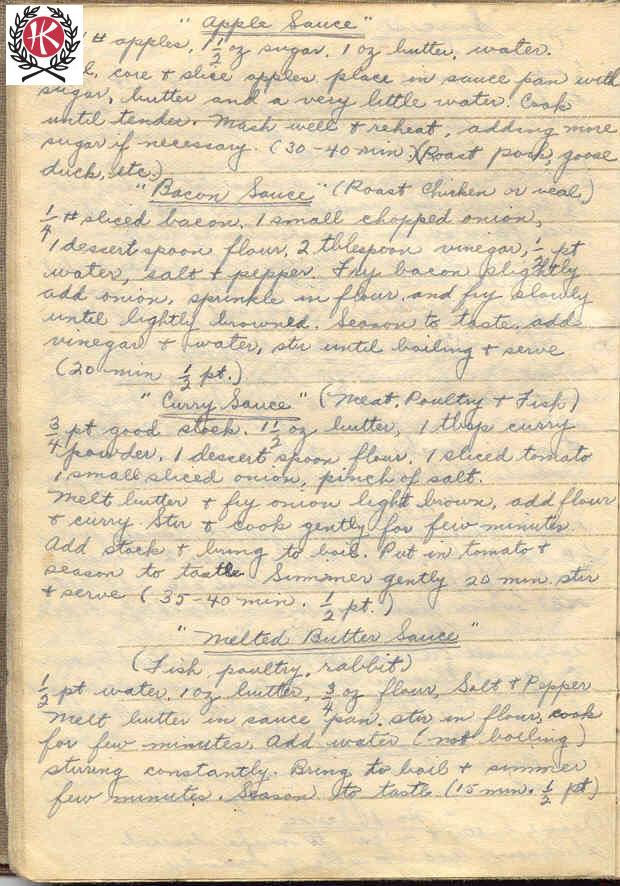 "Apple Sauce"
# apples, 1 1/2 oz sugar, 1 oz butter, water.
core + slice apples place in sauce pan with
sugar, butter and a very little water. Cook
until tender. Mash well + reheat, adding more
sugar if necessary. (30-40 min.) (Roast pork, goose
duck, etc.)
"Bacon Sauce" (Roast Chicken or veal.)
1/4 # sliced bacon, 1 small chopped onion,
1 dessert spoon flour, 2 tblespoon vinegar, 1/2 pt
water, salt + pepper. Fry bacon slightly
add onion, sprinkle in flour, and fry slowly
until lightly browned. Season to taste, add
vinegar + water, stir until boiling + serve
(20 min 1/2 pt.)
"Curry Sauce" (Meat, Poultry + Fish)
3/4 pt good stock, 1 1/2 oz butter, 1 tbsp curry
powder, 1 descert spoon flour, 1 sliced tomato
1 small sliced onion, pinch of salt.
Melt butter + fry onion light brown, add flour
+ curry. Stir + cook gently for few minutes
Add stock + bring to boil. Put in tomato +
season to taste Simmer gently 20 min. stir
+ serve (35-40 min. 1/2 pt.)
"Melted Butter Sauce"
(Fish, poultry, rabbit)
1/2 pt water, 1 oz butter, 3/4 oz flour, Salt + Pepper
Melt butter in sauce pan, stir in flour, cook
for few minutes, Add water (not boiling)
stirring constantly. Bring to boil + simmer
few minutes. Season to taste (15 min. 1/2 pt)